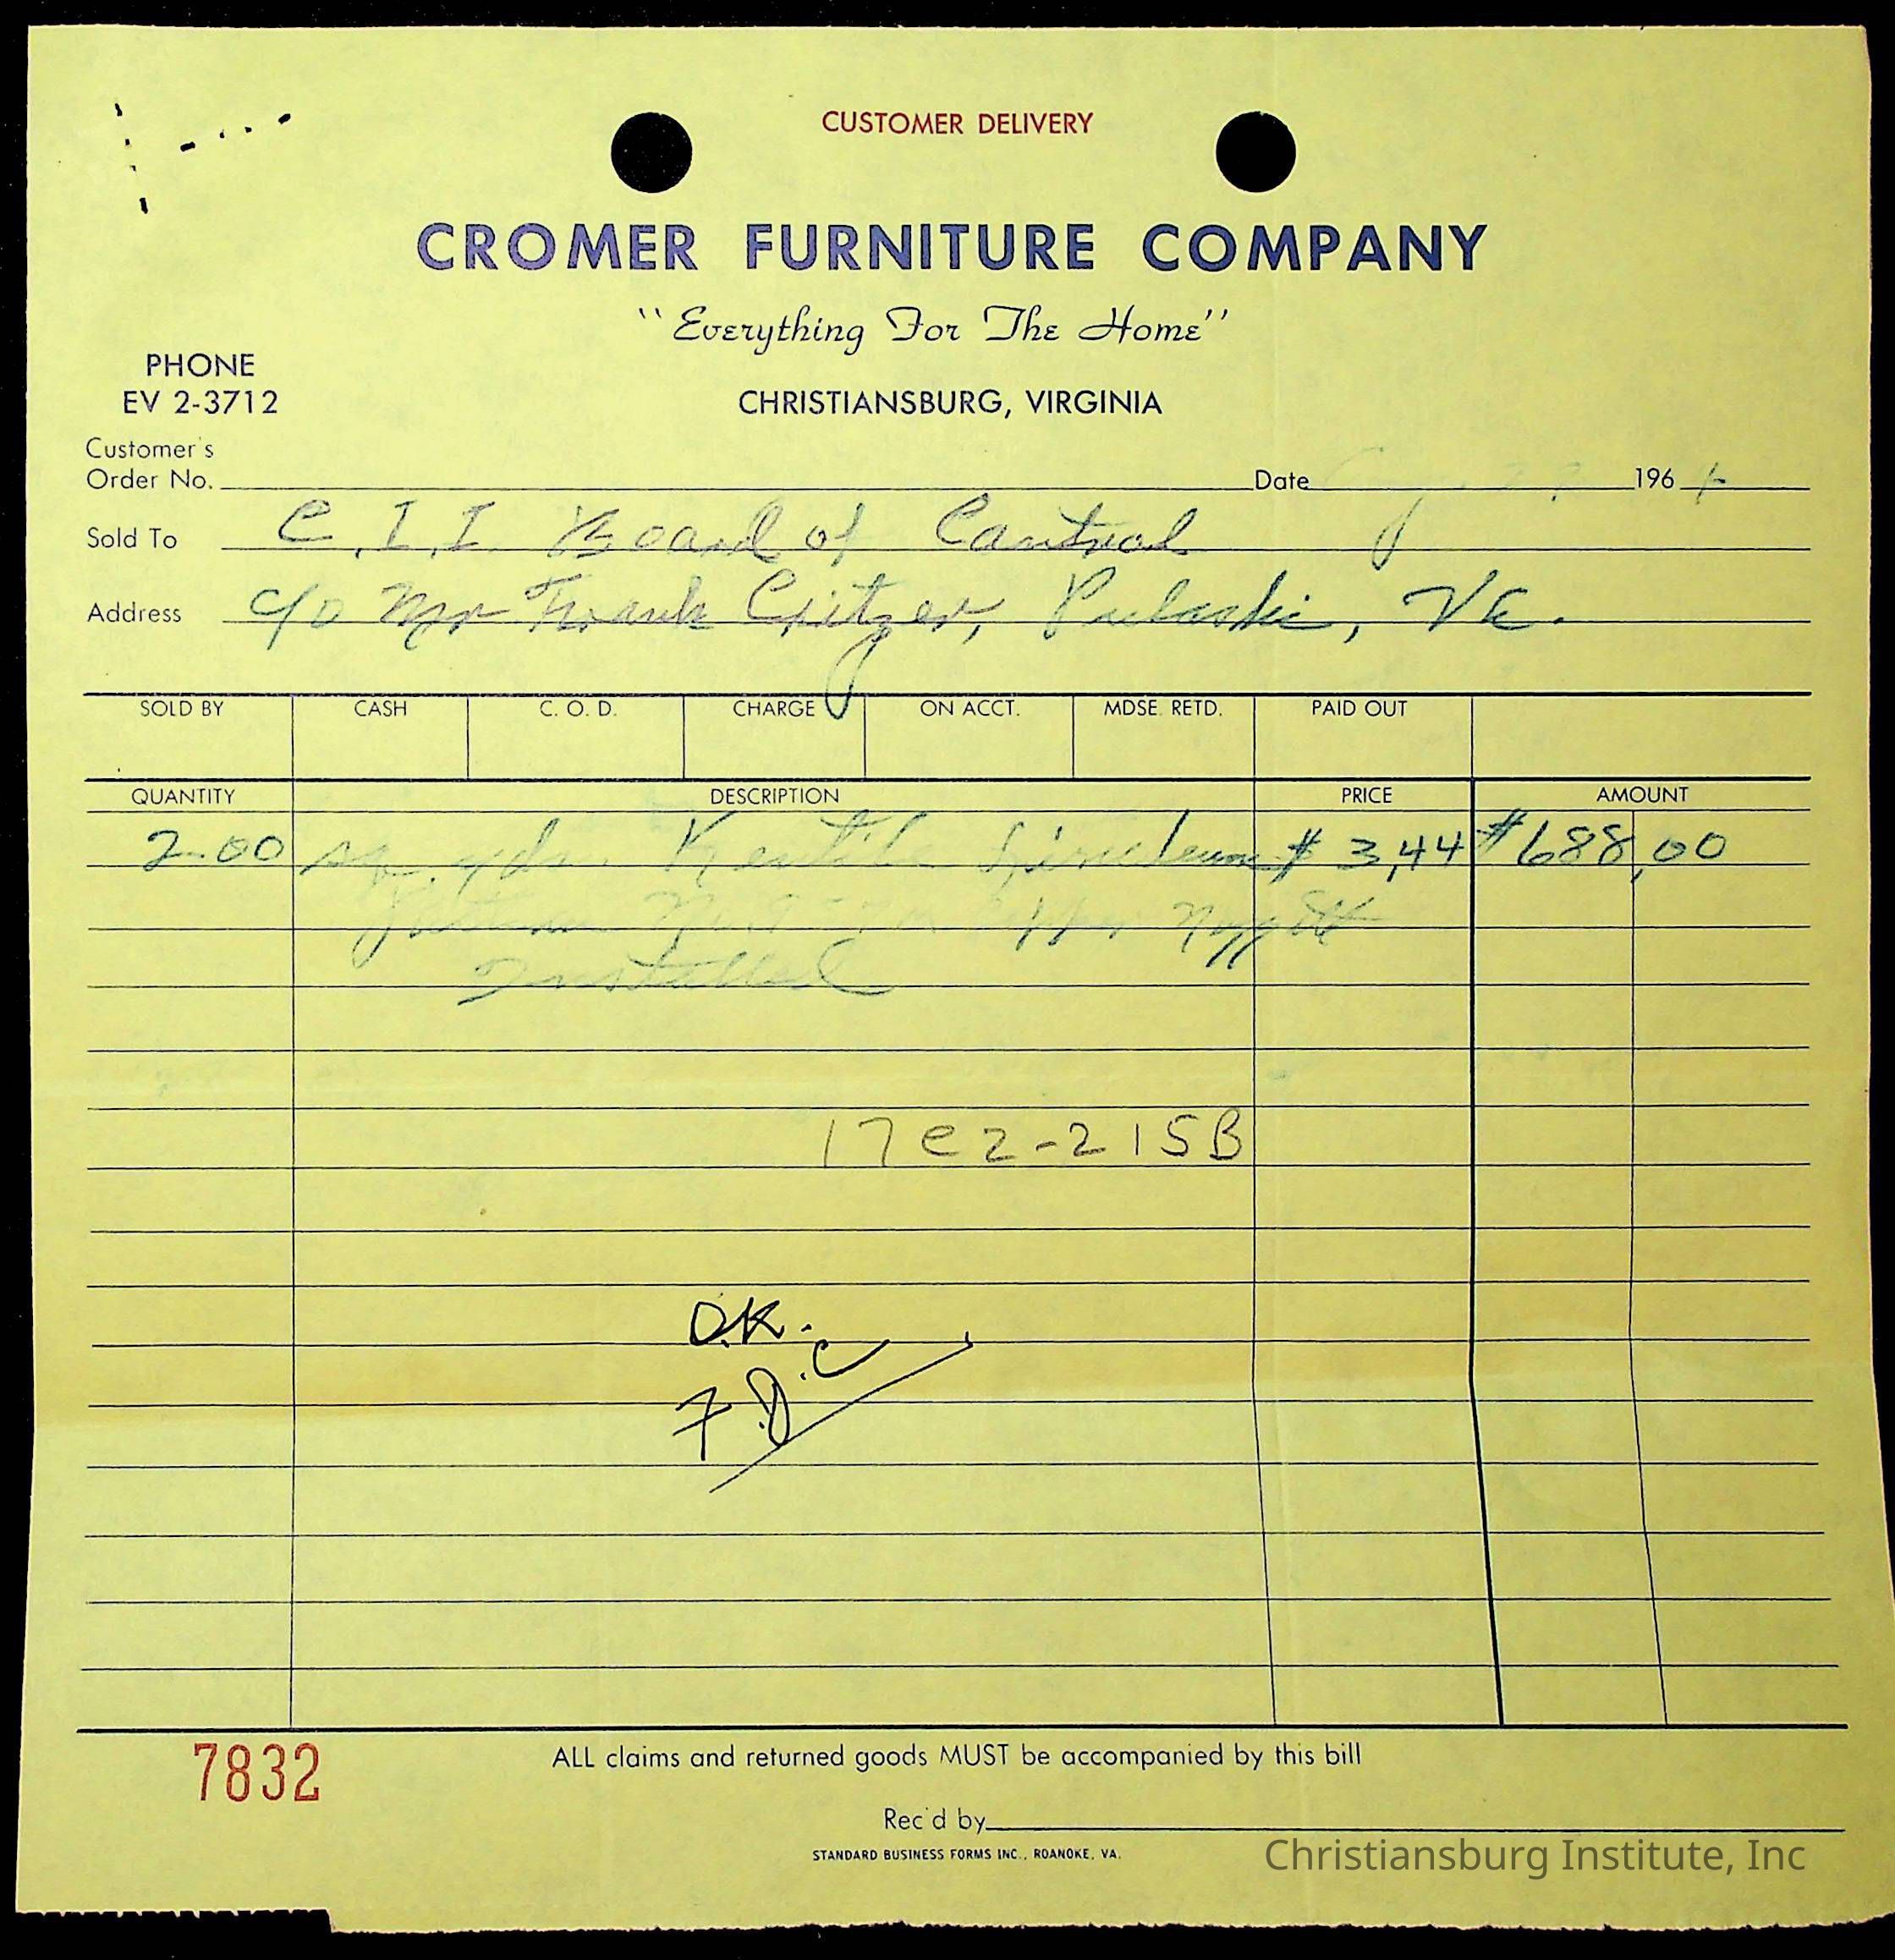 CUSTOMER DELIVERY
CROMER FURNITURE COMPANY
"Everything For The Home"
PHONE
EV 2-3712
CHRISTIANSBURG, VIRGINIA
Customer's
Order No.
Date 196
Sold To C.I.I. Board of Control
Address c/o Mr Frank Critzer, Pulaski, Va.
SOLD BY CASH C. O. D. CHARGE ON ACCT. MDSE. RETD. PAID OUT
QUANTITY DESCRIPTION PRICE AMOUNT
200 sq. yds. Kentile Linoleum $3.44 $688.00
Nuggett
Installed
17e2-215B
O.K.
F.D.C
7832
ALL claims and returned goods MUST be accompanied by this bill
Rec'd by
STANDARD BUSINESS FORMS INC., ROANOKE, VA.
Christiansburg Institute, Inc